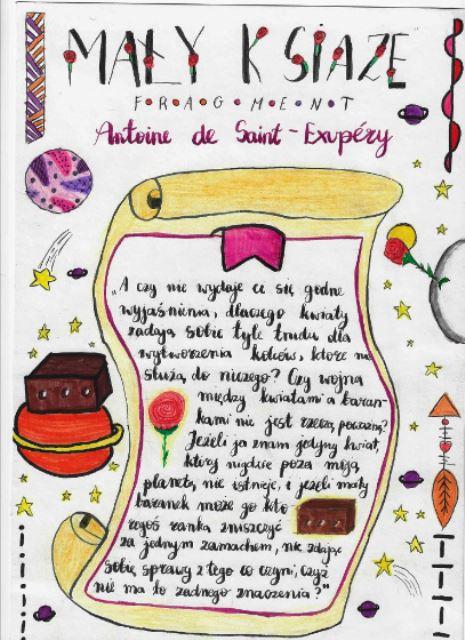 MAŁY KSIĄŻE
FRAGMENT
Antoine de Saint-Exupéry
„A czy nie wydaje ci się godne
wyjaśnienia, dlaczego kwiaty
zadają sobie tyle trudu dla
wytworzenia kolców, które nie
służą do niczego? Czy wojna
między kwiatami a baran-
kami nie jest rzeczą poważną?
Jeżeli ja znam jedyny kwiat,
który nigdzie poza moją
planetą nie istnieje, i jeżeli mały
baranek może go któ-
regoś ranka zniszczyć
za jednym zamachem, nie zdając
sobie sprawy z tego co czyni, czyż
nie ma to żadnego znaczenia?"